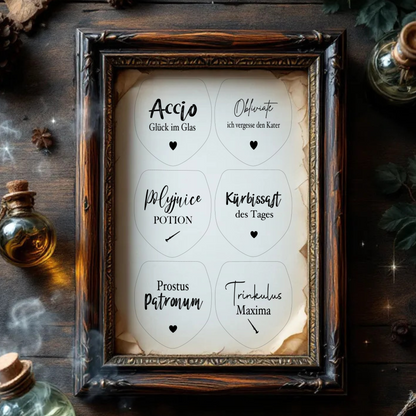 Accio
Glück im Glas
Obliviate
ich vergesse den Kater
Polyjuice
POTION
Kürbissaft
des Tages
Prostus
Patronum
Trinkulus
Maxima